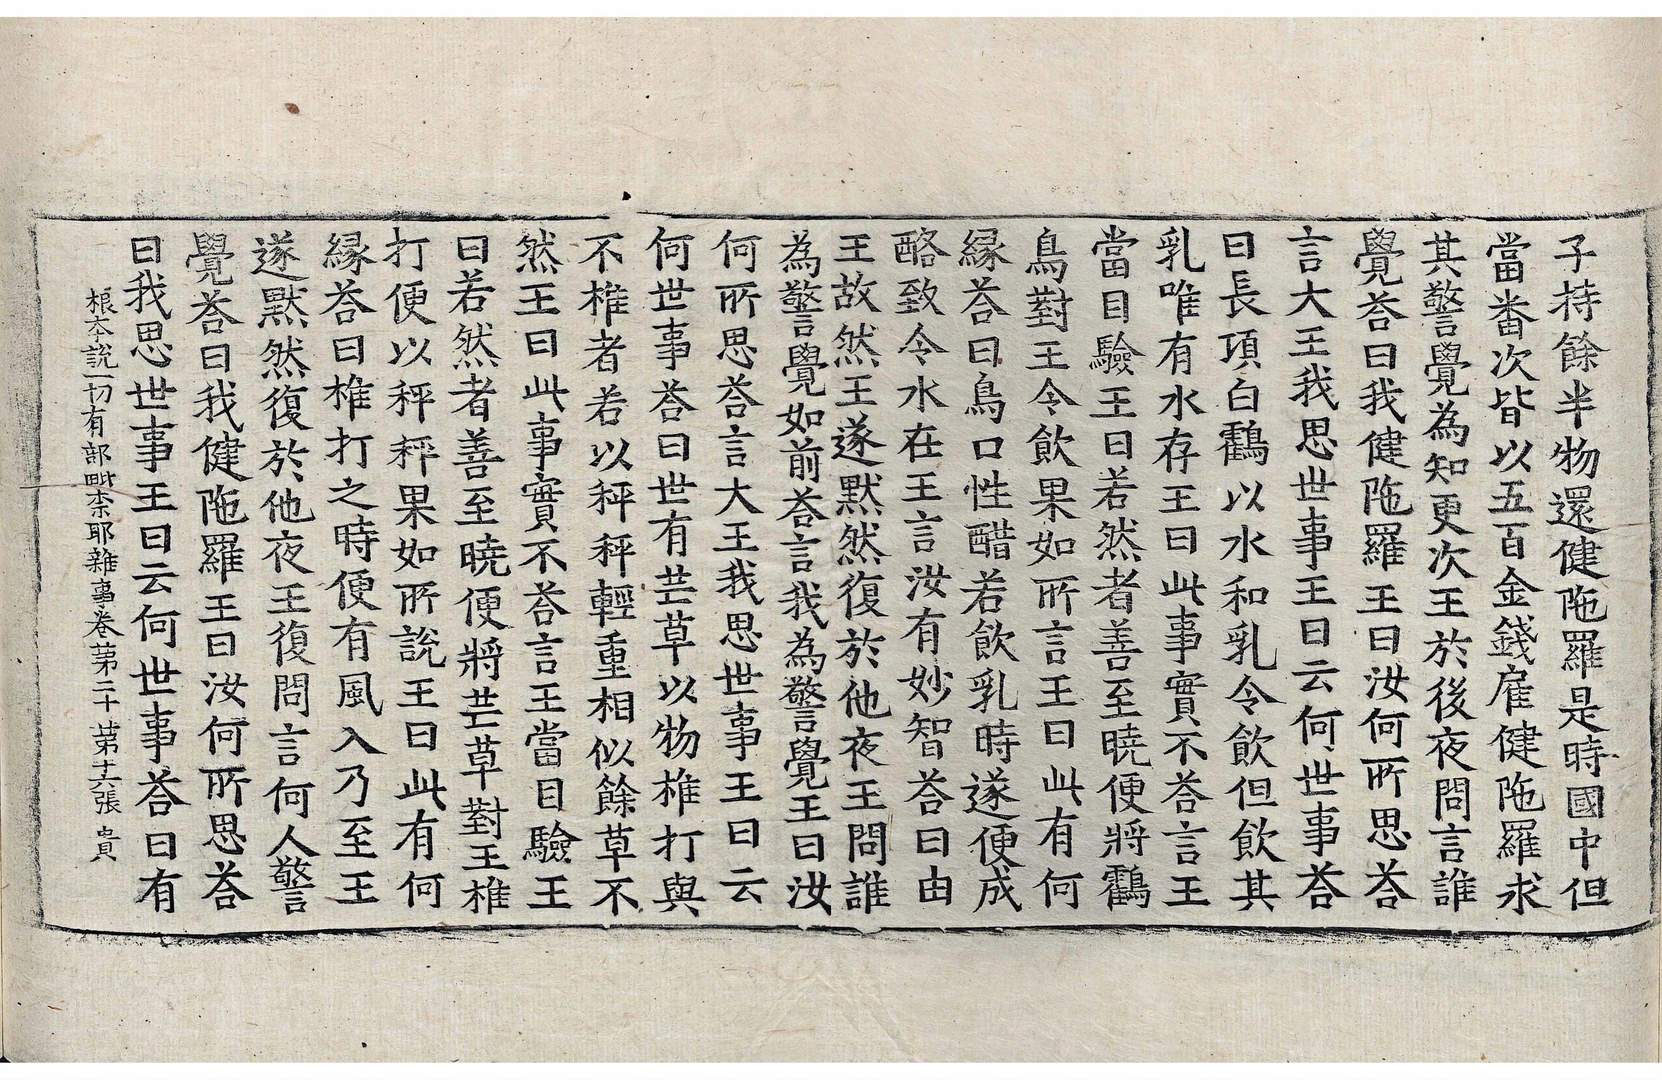 子持餘半物還健陁羅是時國中但
當番次皆以五百金錢雇健陁羅求
其警覺為知更次王於後夜問言誰
覺荅曰我健陁羅王曰汝何所思荅
言大王我思世事王曰云何世事荅
曰長項白鸖以水和乳令飲但飲其
乳唯有水存王曰此事實不荅言王
當目驗王曰若然者善至曉便將鸖
鳥對王令飲果如所言王曰此有何
縁荅曰鳥口性醋若飲乳時遂便成
酪致令水在王言汝有妙智荅曰由
王故然王遂默然復於他夜王問誰
為警覺如前荅言我為警覺王曰汝
何所思荅言大王我思世事王曰云
何世事荅曰世有芒草以物椎打與
不椎者若以秤秤輕重相似餘草不
然王曰此事實不荅言王當目驗王
曰若然者善至曉便將芒草對王椎
打便以秤秤果如所說王曰此有何
縁荅曰椎打之時便有風入乃至王
遂默然復於他夜王復問言何人警
覺荅曰我健陁羅王曰汝何所思荅
曰我思世事王曰云何世事荅曰有
根本說一切有部毗柰耶雜事卷苐二十 苐十六張 貴